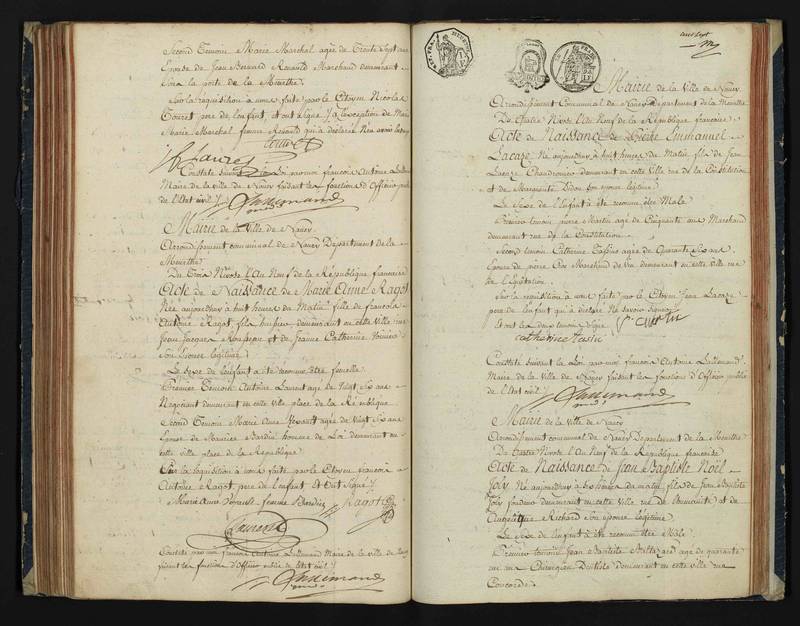 Second Temoin Marie Marchal agée de Trente Sept ans
Epouse de Jean Bernard Renauld Marchand demeurant
Sous la porte de la Meurthe.
Sur la requisition à nous faite par le Citoyen Nicolas
Touret, pere de l'enfant, et ont Signé à l'exception de Marie
Marie Marchal femme Renauld qui a déclaré n'en avoir l'usage
Touret
Constaté Suivant la Loi par moi françois Antoine Lallemand
Maire de la ville de Nancy faisant les fonctions d'Officier public
de l'Etat civil
Lallemand
Mairie de la Ville de Nancy
Arrondissement communal de Nancy Département de la
Meurthe
Du Trois Nivose l'An Neuf de la République française
Acte de Naissance de Marie Anne Ragot
Née aujourdhuy à huit heures du Matin, fille de françois
Antoine Ragot, demeurant en cette ville rue
Jean Jacques Rousseau et de Jeanne Catherine
Son Epouse légitime
Le Sexe de l'enfant a été reconnu être femelle.
Premier Temoin Antoine Laurent agé de Vingt Six ans
Négociant demeurant en cette ville place de la République
Second Temoin Marie Anne agée de Vingt Six ans
Epouse de Maurice Bardin homme de Loi demeurant en
cette ville place de la République
Sur la requisition à nous faite par le Citoyen françois
Antoine Ragot, pere de l'enfant et ont Signé
Marie Anne femme Bardin Ragot
Laurent
Constaté par moi françois Antoine Lallemand Maire de la ville de Nancy
faisant les fonctions d'Officier public de l'état civil
Lallemand
cent sept
Mairie de la Ville de Nancy
Arrondissement Communal de Nancy Département de la Meurthe
Du Quatre Nivose l'An Neuf de la République française
Acte de Naissance de Pierre Emmanuel
Lacaze Né aujourdhuy à huit heures du Matin, fils de Jean
Lacaze Chaudronnier demeurant en cette ville rue de la Constitution
et de Marguerite Son epouse légitime
Le Sexe de l'Enfant a été reconnu être Male.
Premier temoin pierre Martin agé de Cinquante ans Marchand
demeurant rue de la Constitution.
Second temoin Catherine agée de Quarante Six ans
Epouse de pierre Marchand de Vin demeurant en cette ville rue
de l'Equitation.
Sur la requisition à nous faite par le Citoyen Jean Lacaze
pere de l'enfant qui a déclaré ne Savoir Signer
Et ont les deux temoins Signé
catherine
Constaté Suivant la Loi par moi françois Antoine Lallemand
Maire de la Ville de Nancy faisant les fonctions d'Officier public
de l'Etat civil
Lallemand
Mairie de la Ville de Nancy
Arrondissement communal de Nancy Département de la Meurthe
Du Quatre Nivose l'An Neuf de la République française
Acte de Naissance de Jean Baptiste Noël
Joly Né aujourdhuy à Six heures du matin, fils de Jean Baptiste
Joly demeurant en cette ville rue de et de
Angélique Richard Son epouse légitime.
Le Sexe de l'enfant a été reconnu être Male.
Premier temoin Jean Baptiste agé de quarante
ans Chirurgien Dentiste demeurant en cette ville rue
Concorde.